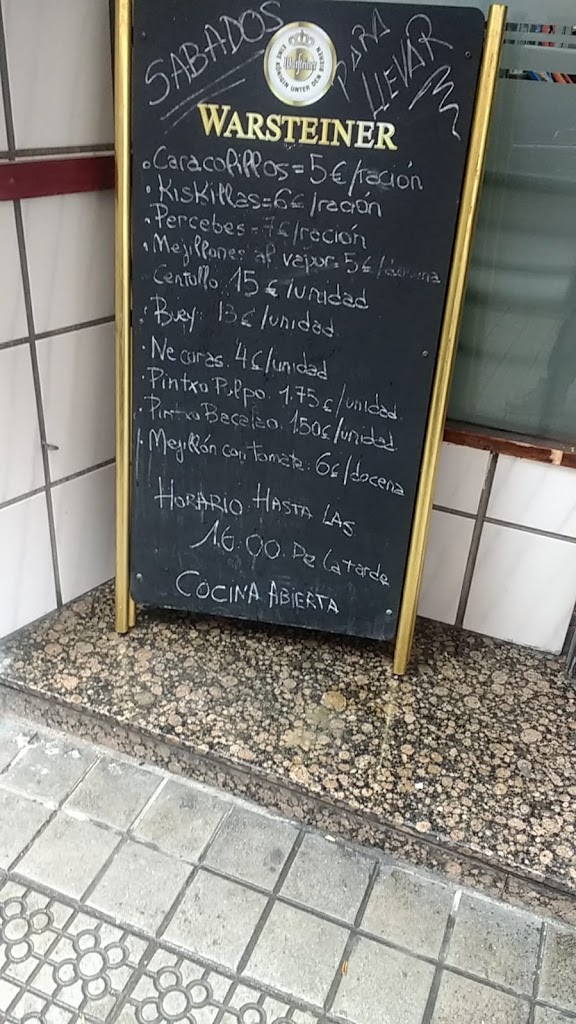 SABADOS
PARA
LLEVAR
EINE KÖNIGIN UNTER DEN BIEREN
Warsteiner
WARSTEINER
• Caracolillos = 5€/ración
• Kiskillas = 6€/ración
• Percebes = 7€/ración
• Mejillones al vapor: 5€/docena
Centollo: 15€/unidad
• Buey: 13€/unidad
• Necoras. 4€/unidad
• Pintxo Pulpo. 1.75€/unidad.
• Pintxo Bacalao. 1.50€/unidad
• Mejillón con tomate. 6€/docena
HORARIO HASTA LAS
16:00. De la tarde
COCINA ABIERTA